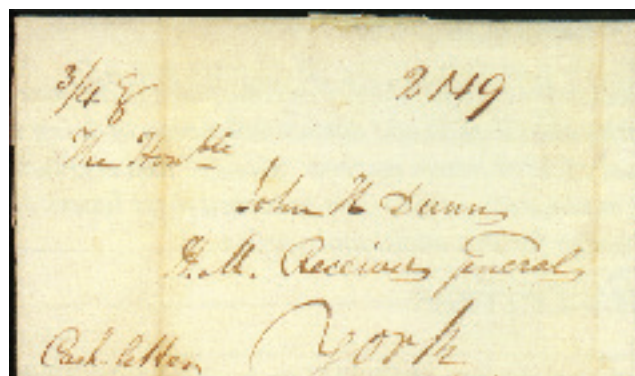 3/4 2N9
The Honble
John H Dunn
H. M. Receiver general
York
Cash letter